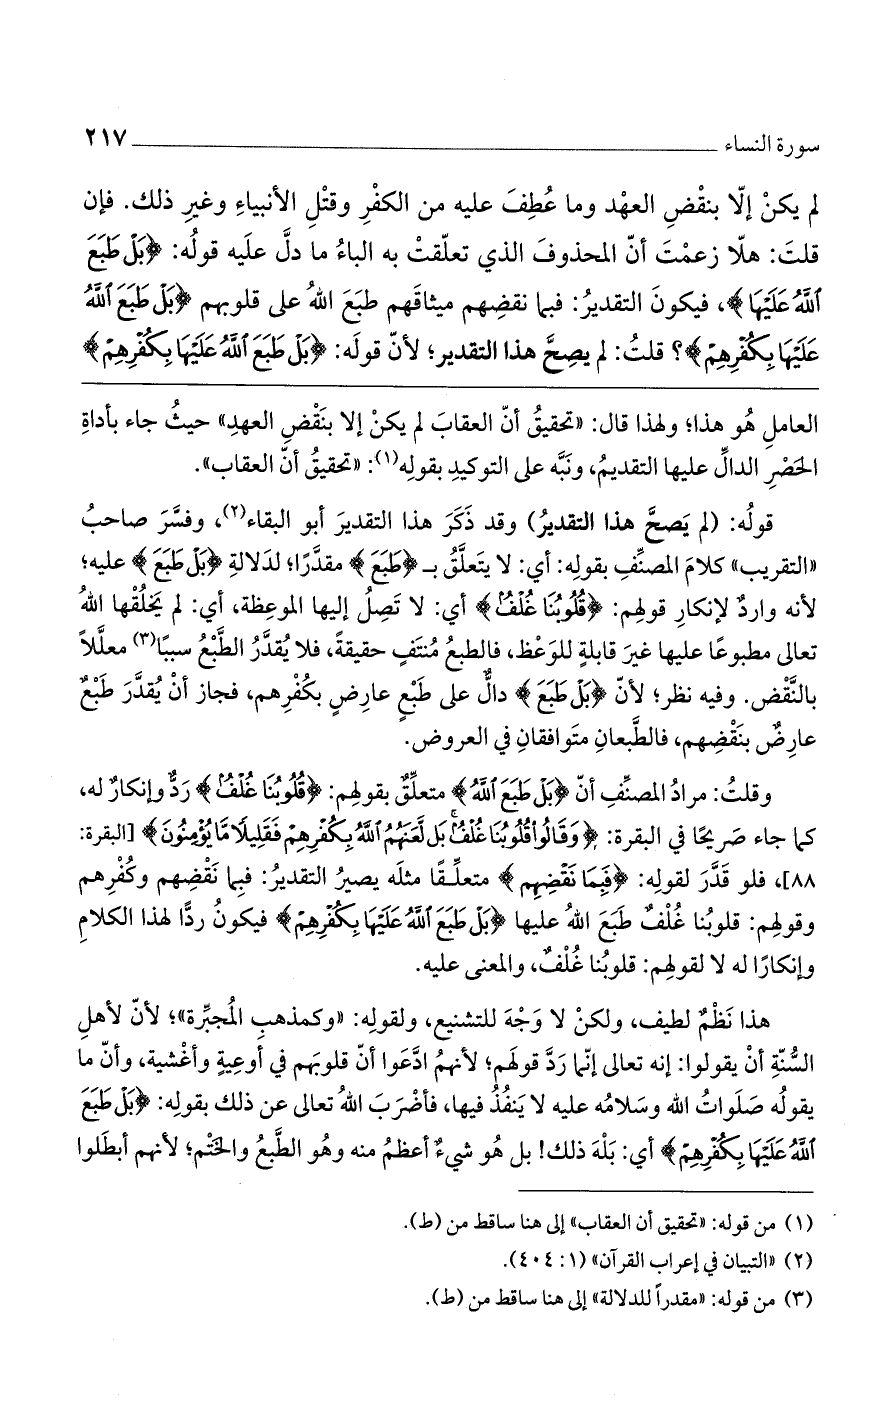 سورة النساء ــــــــــــــــــــ ٢١٧
لم يكنْ إلّا بنقْضِ العهْد وما عُطِفَ عليه من الكفْرِ وقتْلِ الأنبياءِ وغيرِ ذلك. فإن
قلتَ: هلّا زعمْتَ أنّ المحذوفَ الذي تعلّقتْ به الباءُ ما دلَّ علَيه قولُه: ﴿بَلْ طَبَعَ
ٱللَّهُ عَلَيْهَا﴾، فيكونَ التقديرُ: فبما نقضِهم ميثاقَهم طبَعَ اللهُ على قلوبهم ﴿بَلْ طَبَعَ ٱللَّهُ
عَلَيْهَا بِكُفْرِهِمْ﴾؟ قلتُ: لم يصِحَّ هذا التقدير؛ لأنّ قولَه: ﴿بَلْ طَبَعَ ٱللَّهُ عَلَيْهَا بِكُفْرِهِمْ﴾
العاملِ هُو هذا؛ ولهذا قال: «تحقيقُ أنّ العقابَ لم يكنْ إلا بنَقْضِ العهدِ» حيثُ جاء بأداةِ
الحَصْرِ الدالِّ عليها التقديمُ، ونَبَّه على التوكيدِ بقولِه(١): «تحقيقُ أنّ العقاب».
قولُه: (لم يَصحَّ هذا التقديرُ) وقد ذَكَرَ هذا التقديرَ أبو البقاء(٢)، وفسَّرَ صاحبُ
«التقريب» كلامَ المصنِّفِ بقولِه: أي: لا يتَعلَّقُ بـ ﴿طَبَعَ﴾ مقدَّرًا؛ لدَلالةِ ﴿بَلْ طَبَعَ﴾ عليه؛
لأنه واردٌ لإنكارِ قولهِم: ﴿قُلُوبُنَا غُلْفٌ﴾ أي: لا تَصِلُ إليها الموعِظة، أي: لم يَخلُقْها اللهُ
تعالى مطبوعًا عليها غيرَ قابلةٍ للوَعْظ، فالطبعُ مُنتَفٍ حقيقةً، فلا يُقدَّرُ الطَّبْعُ سببًا(٣) معلَّلاً
بالنَّقْض. وفيه نظر؛ لأنّ ﴿بَلْ طَبَعَ﴾ دالٌّ على طَبْعٍ عارِضٍ بكُفْرِهم، فجاز أنْ يُقدَّرَ طَبْعٌ
عارِضٌ بنَقْضِهم، فالطَّبعانِ متَوافقانِ في العروض.
وقلتُ: مرادُ المصنِّفِ أنّ ﴿بَلْ طَبَعَ ٱللَّهُ﴾ متعلِّقٌ بقولهِم: ﴿قُلُوبُنَا غُلْفٌ﴾ رَدٌّ وإنكارٌ له،
كما جاء صَريحًا في البقرة: ﴿وَقَالُوا۟ قُلُوبُنَا غُلْفٌۢ ۚ بَل لَّعَنَهُمُ ٱللَّهُ بِكُفْرِهِمْ فَقَلِيلًا مَّا يُؤْمِنُونَ﴾ [البقرة:
٨٨]، فلو قَدَّرَ لقولِه: ﴿فَبِمَا نَقْضِهِم﴾ متعلِّـقًا مثلَه يصيرُ التقديرُ: فبِما نَقْضِهم وكُفْرِهم
وقولهِم: قلوبُنا غُلْفٌ طَبَعَ اللهُ عليها ﴿بَلْ طَبَعَ ٱللَّهُ عَلَيْهَا بِكُفْرِهِمْ﴾ فيكونُ ردًّا لهذا الكلامِ
وإنكارًا له لا لقولهِم: قلوبُنا غُلْفٌ، والمعنى عليه.
هذا نَظْمٌ لطيف، ولكنْ لا وَجْهَ للتشنيع، ولقولِه: «وكمذهبِ المُجبِّرة»؛ لأنّ لأهلِ
السُّنّةِ أنْ يقولوا: إنه تعالى إنّما رَدَّ قولَهم؛ لأنهمُ ادَّعَوا أنّ قلوبَهم في أوعِيةٍ وأغْشية، وأنّ ما
يقولُه صَلَواتُ الله وسَلامُه عليه لا يَنفُذُ فيها، فأضْرَبَ اللهُ تعالى عن ذلك بقولِه: ﴿بَلْ طَبَعَ
ٱللَّهُ عَلَيْهَا بِكُفْرِهِمْ﴾ أي: بَلْهَ ذلك! بل هُو شيءٌ أعظمُ منه وهُو الطَّبعُ والختْم؛ لأنهم أبطَلوا
(١) من قوله: «تحقيق أن العقاب» إلى هنا ساقط من (ط).
(٢) «التبيان في إعراب القرآن» (١: ٤٠٤).
(٣) من قوله: «مقدراً للدلالة» إلى هنا ساقط من (ط).